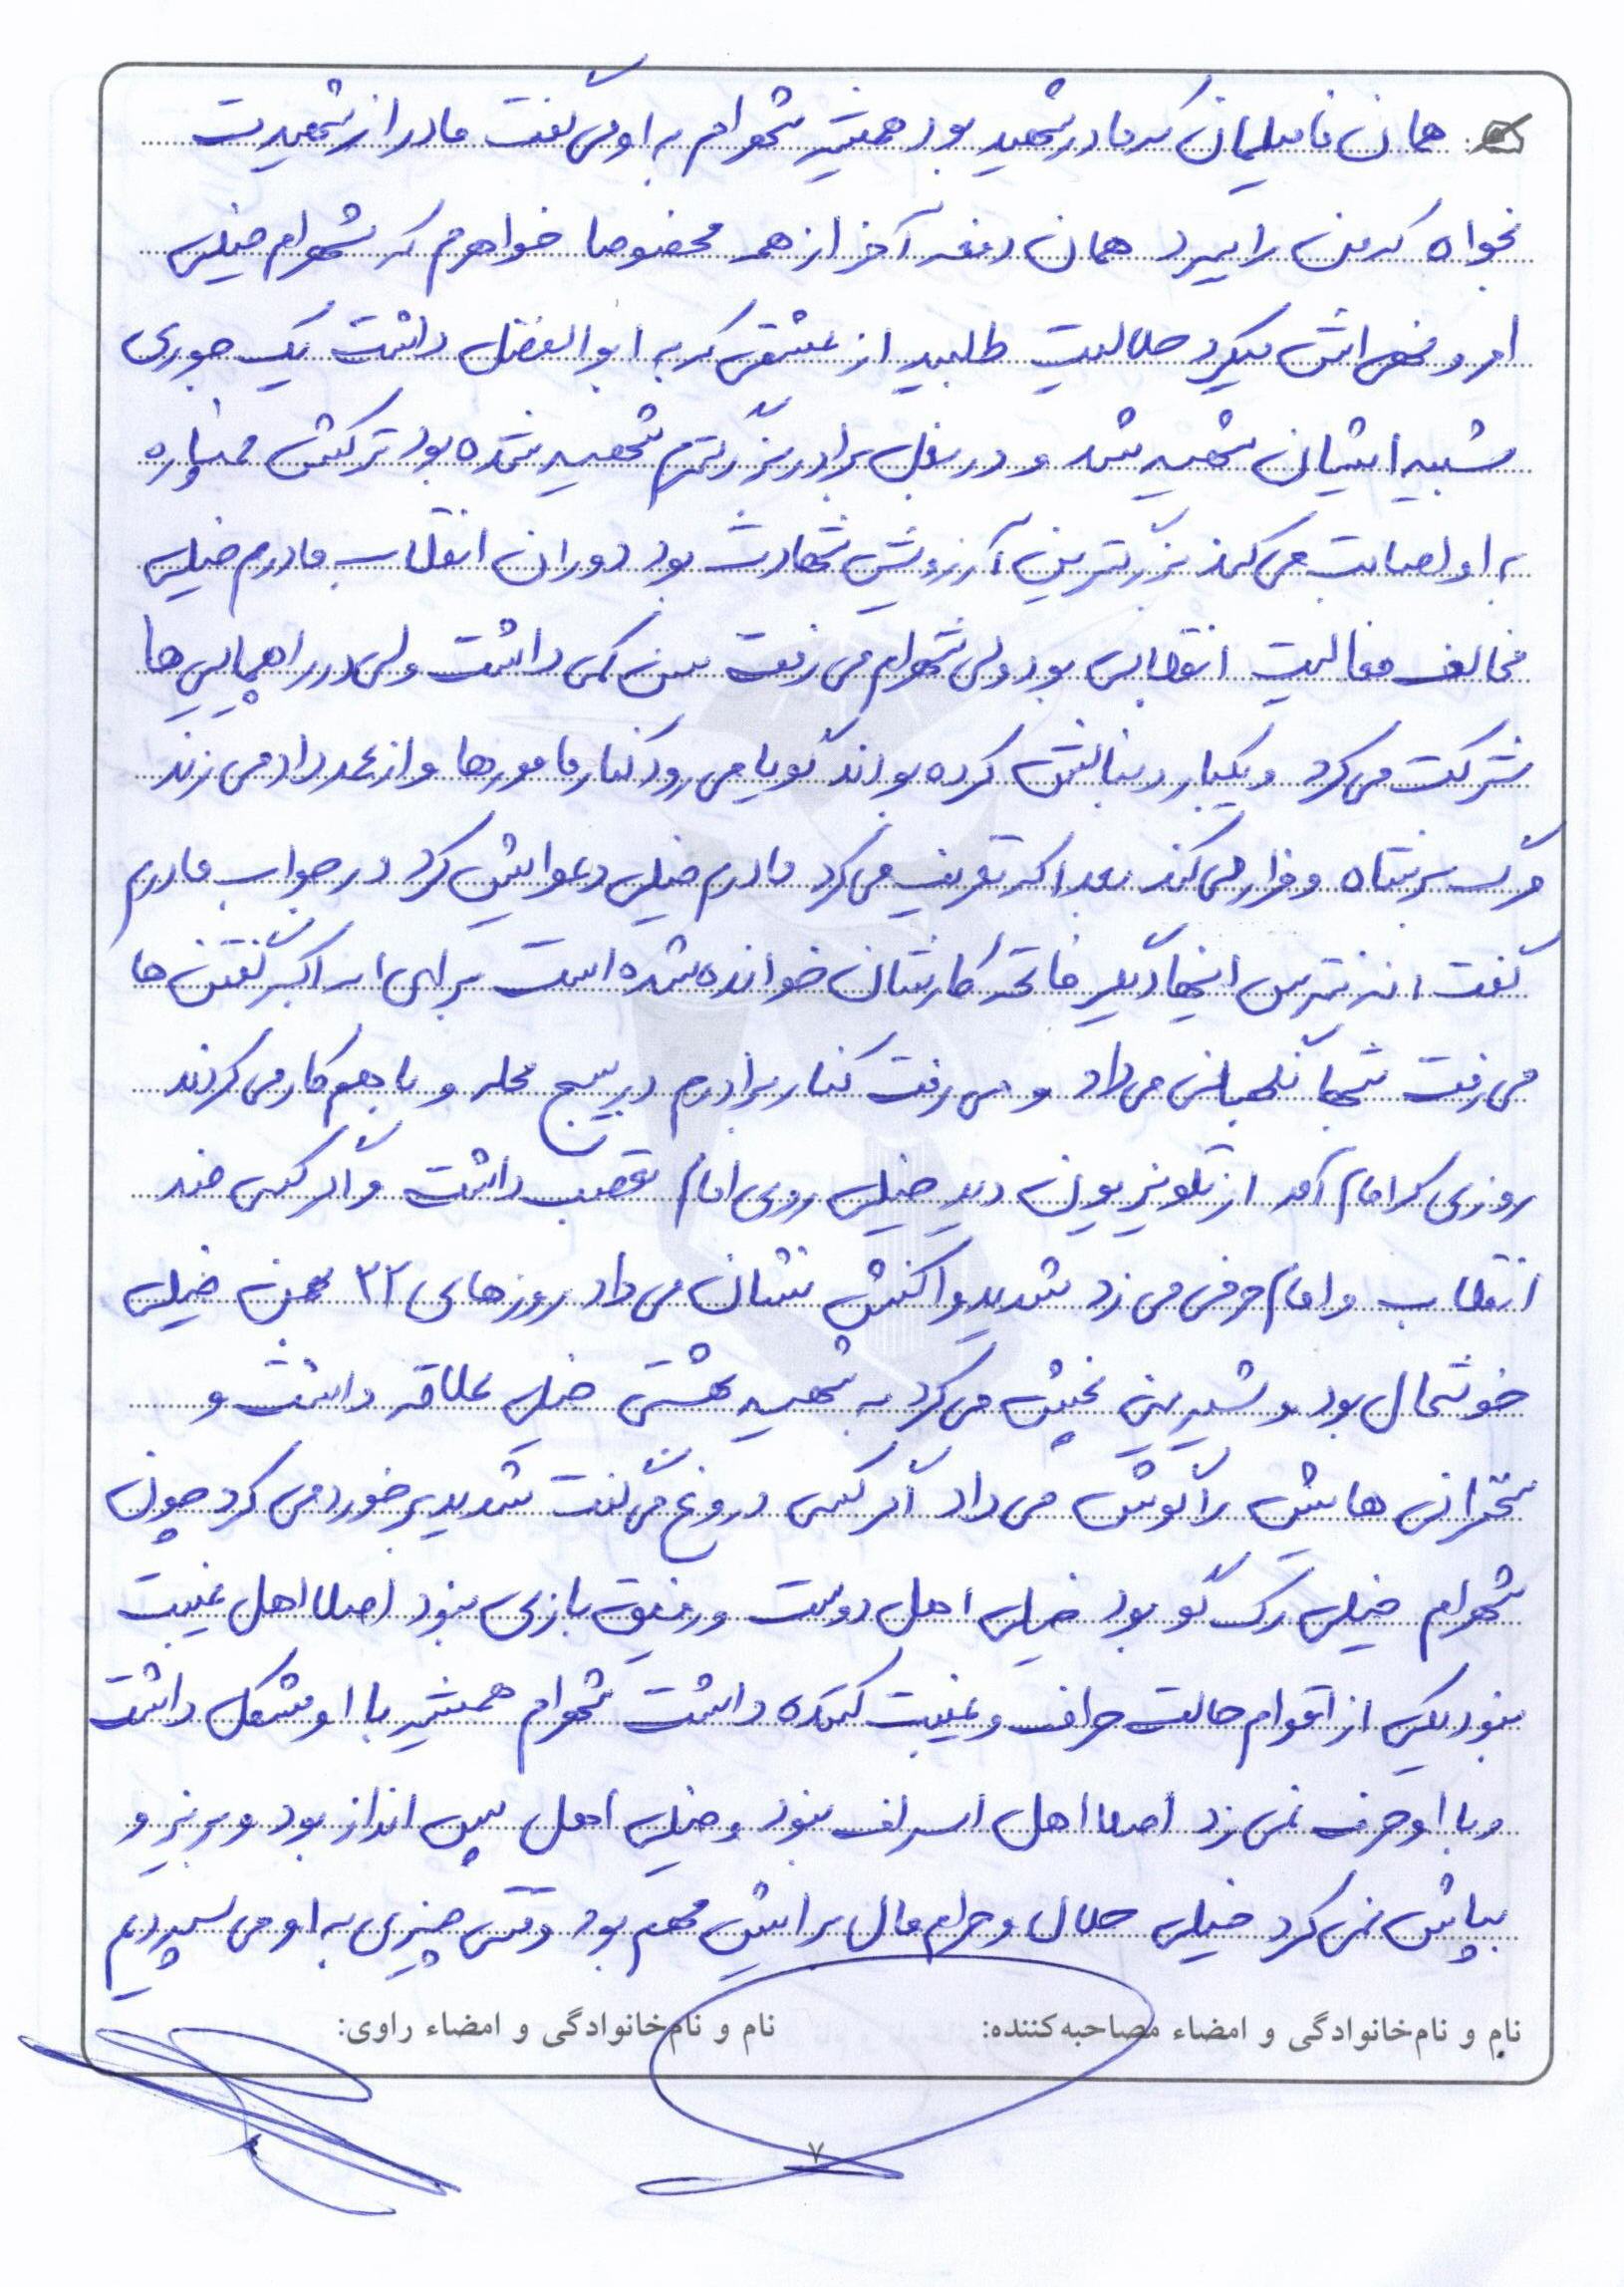 همان فامیلمان که مادر شهید بود همیشه شهرام به او می گفت مادر از شهیدت
بخواه که من را ببرد همان دفعه آخر از همه مخصوصا خواهرم که شهرام خیلی
امر و نهی اش میکرد حلالیت طلبید از عشقی که به ابوالفضل داشت یک جوری
شبیه ایشان شهید شد و در بغل برادر بزرگترم شهید شده بود ترکش خمپاره
به او اصابت می کند بزرگترین آرزویش شهادت بود دوران انقلاب مادرم خیلی
مخالف فعالیت انقلابی بود ولی شهرام می رفت سن کمی داشت ولی در راهپیمایی ها
شرکت می کرد و یکبار دنبالش کرده بودند گویا می رود کنار مامورها و از عمد داد می زند
مرگ بر شاه و فرار می کند بعدا که تعریف می کرد مادرم خیلی دعوایش کرد در جواب مادرم
گفت ننه نترس اینها دیگر فاتحه کارشان خوانده شده است برای الله اکبر گفتن ها
می رفت شبها نگهبانی می داد و می رفت کنار برادرم در بسیج محله و با هم کار می کردند
روزی که امام آمد از تلویزیون دید خیلی روی امام تعصب داشت و اگر کسی ضد
انقلاب و امام حرفی می زد شدید واکنش نشان می داد روزهای ۲۲ بهمن خیلی
خوشحال بود و شیرینی پخش می کرد به شهید بهشتی خیلی علاقه داشت و
سخنرانی هایش را گوش می داد اگر کسی دروغ می گفت شدید برخورد می کرد چون
شهرام خیلی رک گو بود خیلی اهل دوست و رفیق بازی نبود اصلا اهل غیبت
نبود یکی از اقوام حالت حراف و غیبت کننده داشت شهرام همیشه با او مشکل داشت
و با او حرف نمی زد اصلا اهل اسراف نبود و خیلی اهل پس انداز بود و بریز و
بپاش نمی کرد خیلی حلال و حرام مال برایش مهم بود وقتی چیزی به او می سپردیم
نام و نام‌خانوادگی و امضاء مصاحبه‌کننده: نام و نام‌خانوادگی و امضاء راوی:
۷